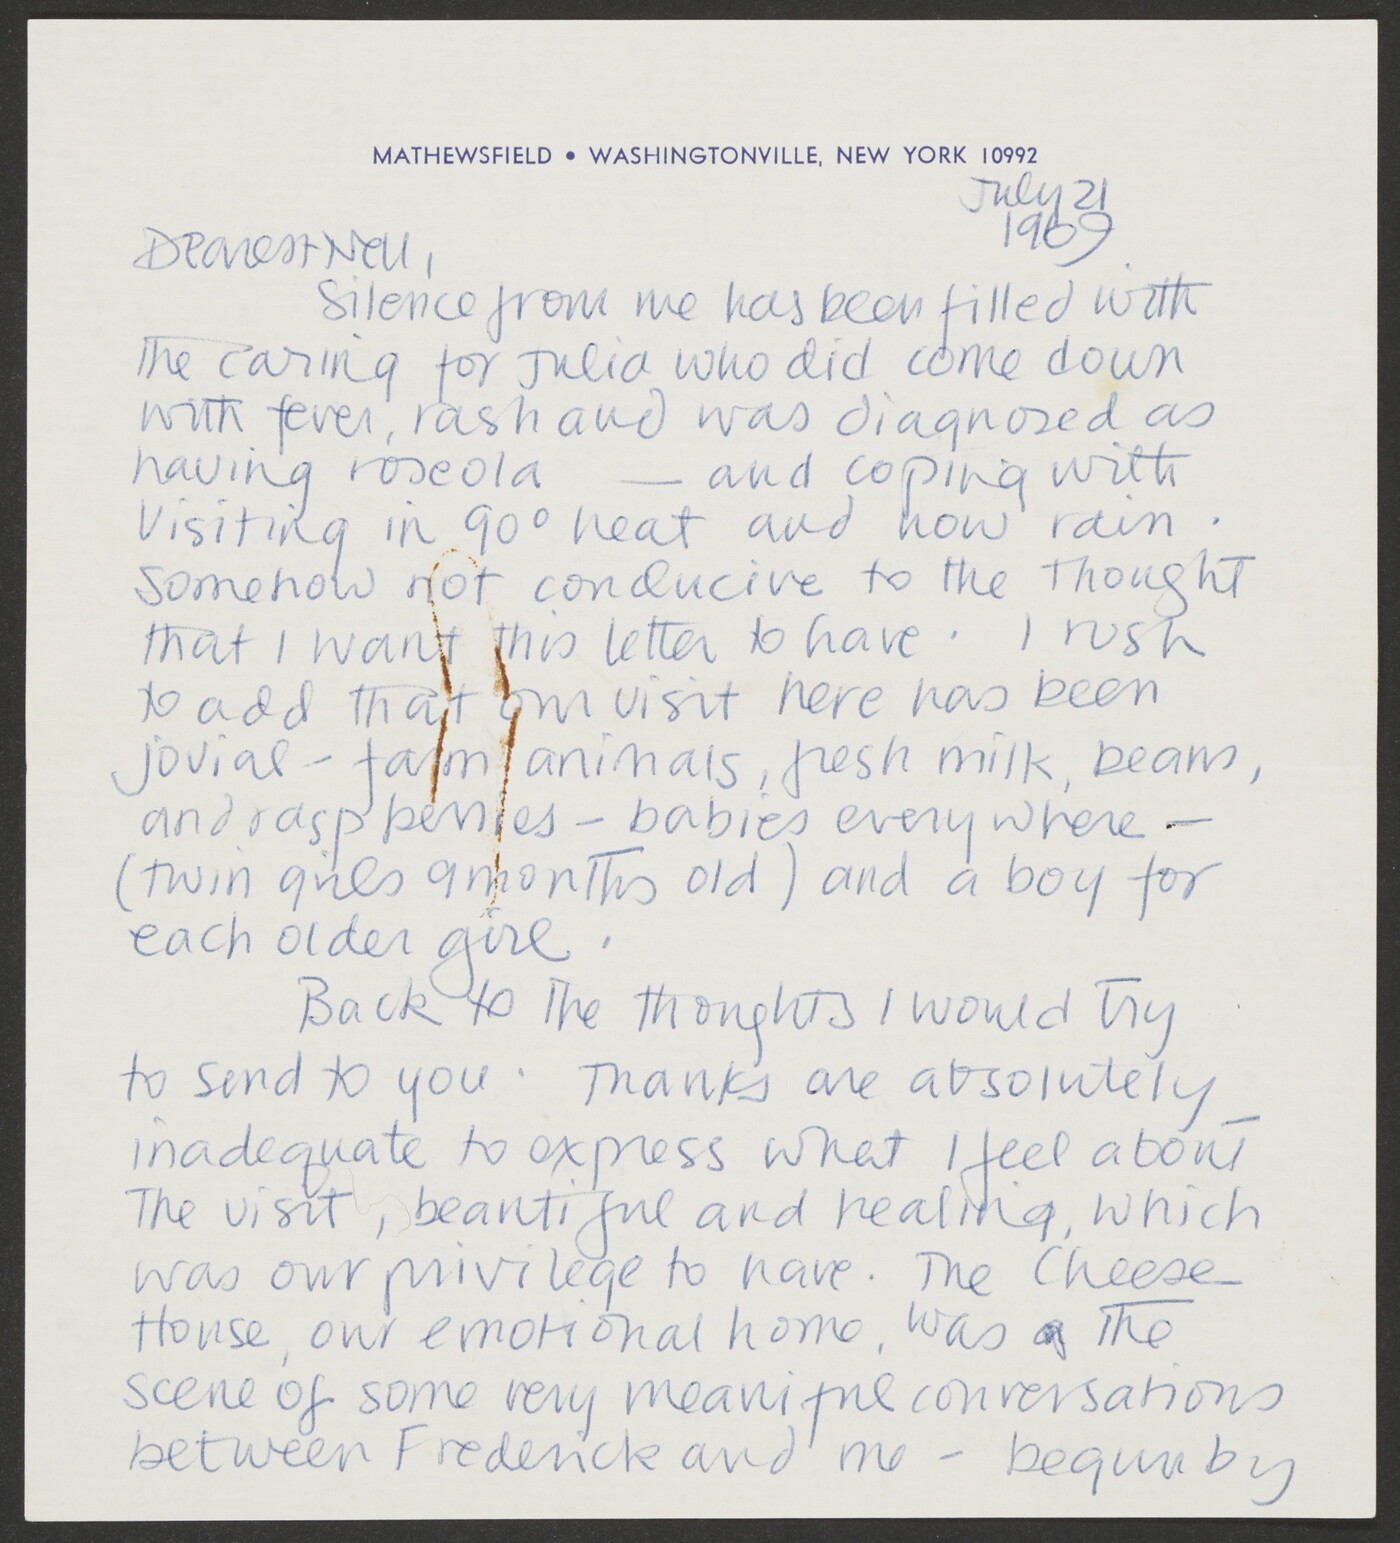 MATHEWSFIELD • WASHINGTONVILLE, NEW YORK 10992
July 21
1969
Dearest Nell,
Silence from me has been filled with
the caring for Julia who did come down
with fever, rash and was diagnosed as
having roseola — and coping with
visiting in 90° heat and now rain.
Somehow not conducive to the thought
that I want this letter to have. I rush
to add that our visit here has been
jovial – farm animals, fresh milk, beans,
and raspberries – babies everywhere –
(twin girls 9 months old) and a boy for
each older girl.
Back to the thoughts I would try
to send to you. Thanks are absolutely
inadequate to express what I feel about
the visit, beautiful and healing, which
was our privilege to have. The Cheese
House, our emotional home, was the
scene of some very meaniful conversations
between Frederick and me – begun by